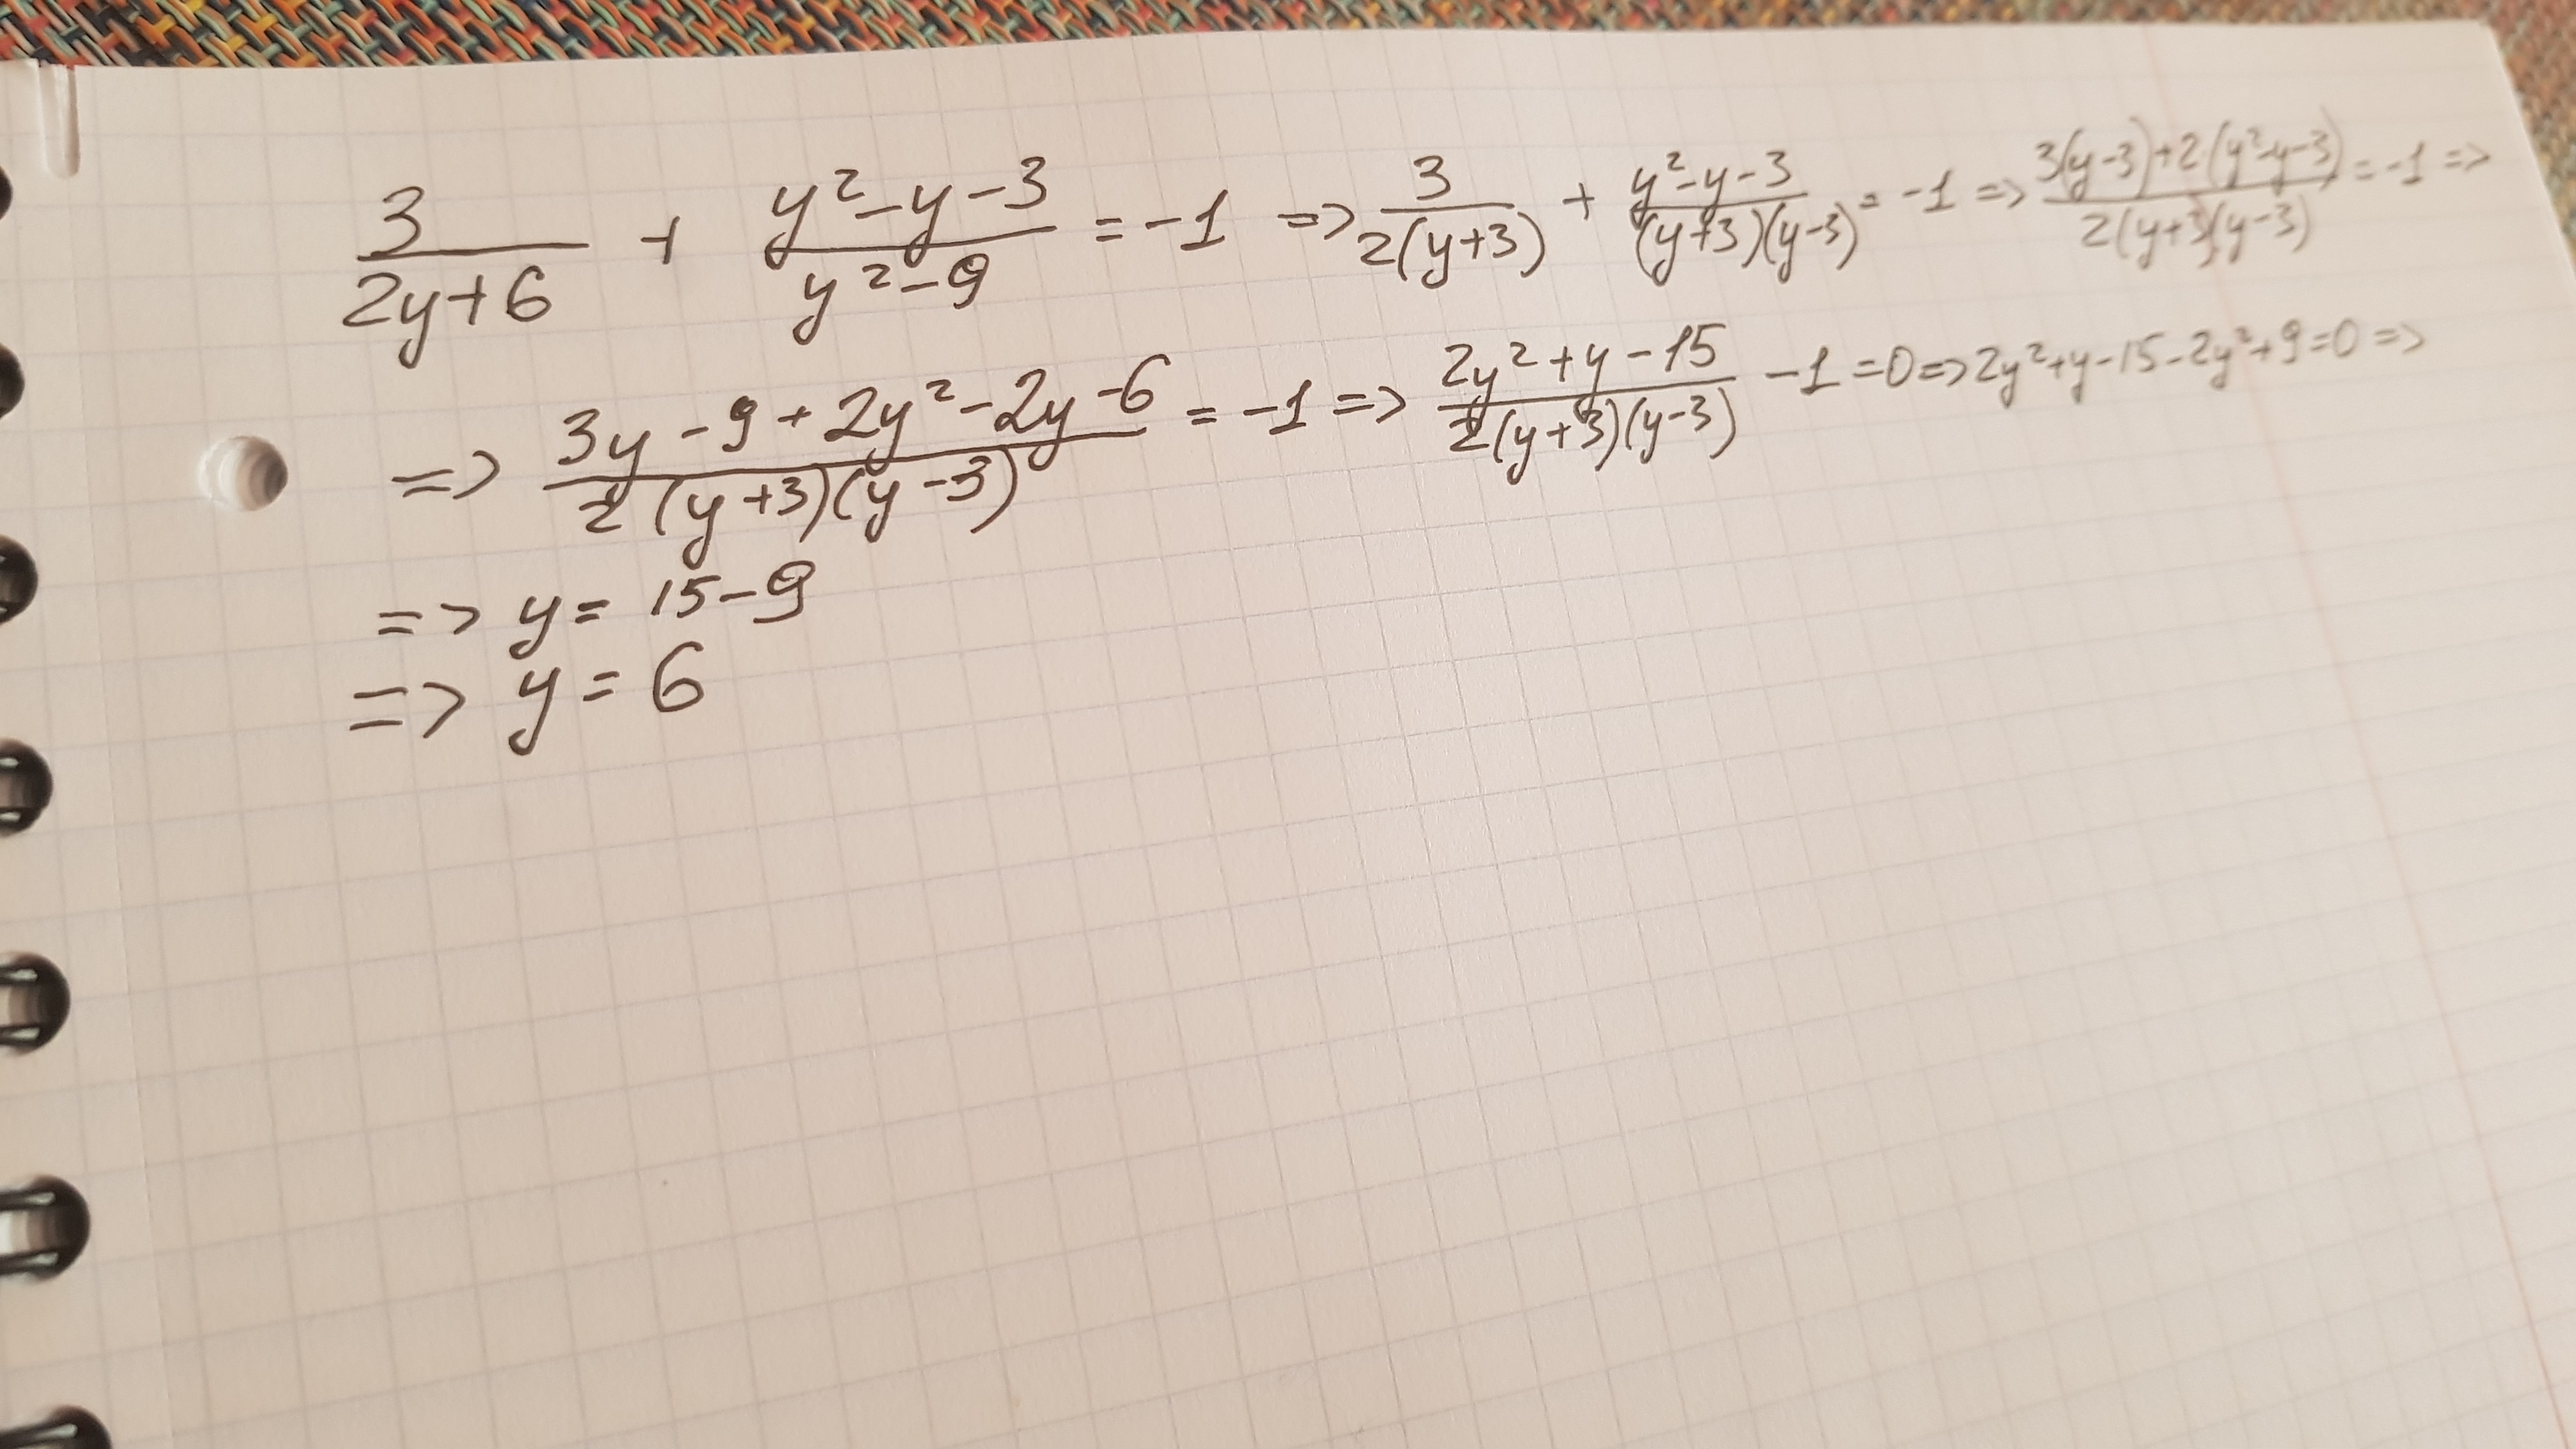 3/(2y+6) + (y²-y-3)/(y²-9) = -1 => 3/(2(y+3)) + (y²-y-3)/((y+3)(y-3)) = -1 => (3(y-3)+2(y²-y-3))/(2(y+3)(y-3)) = -1 =>
=> (3y-9+2y²-2y-6)/(2(y+3)(y-3)) = -1 => (2y²+y-15)/(2(y+3)(y-3)) -1=0 => 2y²+y-15-2y²+9=0 =>
=> y= 15-9
=> y = 6